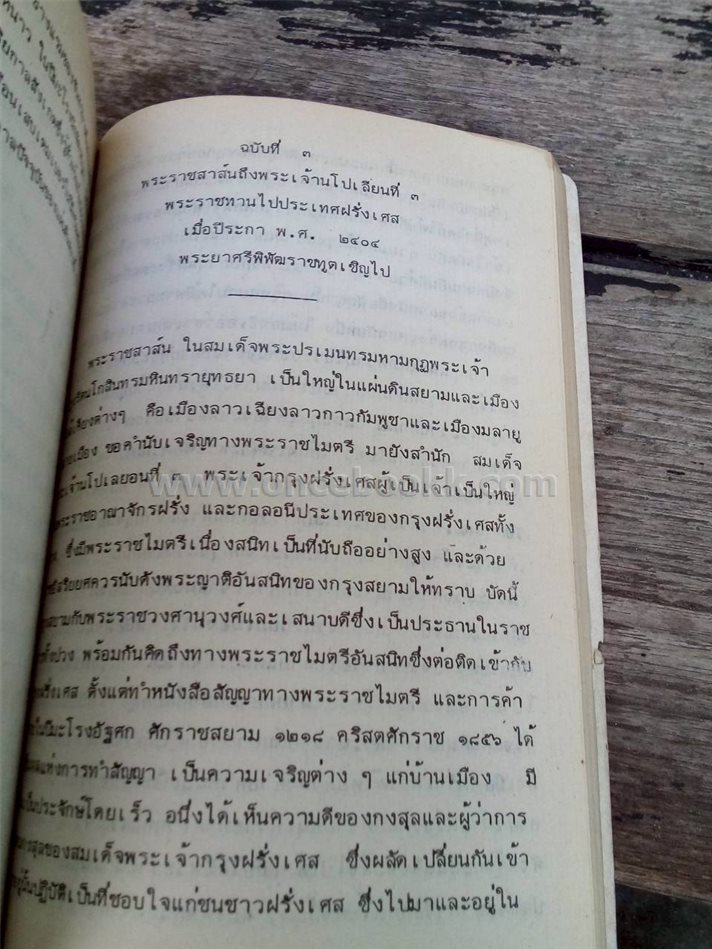 ฉบับที่ ๓
พระราชสาส์นถึงพระเจ้านโปเลียนที่ ๓
พระราชทานไปประเทศฝรั่งเศส
เมื่อปีระกา พ.ศ. ๒๔๐๔
พระยาศรีพิพัฒราชทูตเชิญไป
พระราชสาส์น ในสมเด็จพระปรเมนทรมหามกุฏพระเจ้า
รัตนโกสินทรมหินทรายุทธยา เป็นใหญ่ในแผ่นดินสยามและเมือง
ใกล้เคียงต่างๆ คือเมืองลาวเฉียงลาวกาวกัมพูชาและเมืองมลายู
หลายเมือง ขอคำนับเจริญทางพระราชไมตรี มายังสำนัก สมเด็จ
พระเจ้านโปเลยอนที่ ๓ พระเจ้ากรุงฝรั่งเศสผู้เป็นเจ้าเป็นใหญ่
พระราชอาณาจักรฝรั่ง และกอลอนีประเทศของกรุงฝรั่งเศสทั้ง
ซึ่งมีพระราชไมตรีเนื่องสนิทเป็นที่นับถืออย่างสูง และด้วย
อิสริยยศควรนับดังพระญาติอันสนิทของกรุงสยามให้ทราบ บัดนี้
สยามกับพระราชวงศานุวงศ์และเสนาบดีซึ่งเป็นประธานในราช
ทั้งปวง พร้อมกันคิดถึงทางพระราชไมตรีอันสนิทซึ่งต่อติดเข้ากับ
ฝรั่งเศส ตั้งแต่ทำหนังสือสัญญาทางพระราชไมตรี และการค้า
ในปีมะโรงอัฐศก ศักราชสยาม ๑๒๑๘ คริสตศักราช ๑๘๕๖ ได้
ผลแห่งการทำสัญญา เป็นความเจริญต่าง ๆ แก่บ้านเมือง มี
เป็นประจักษ์โดยเร็ว อนึ่งได้เห็นความดีของกงสุลและผู้ว่าการ
กงสุลของสมเด็จพระเจ้ากรุงฝรั่งเศส ซึ่งผลัดเปลี่ยนกันเข้า
อยู่นั้นปฏิบัติเป็นที่ชอบใจแก่ชนชาวฝรั่งเศส ซึ่งไปมาและอยู่ใน
www.oncebook.com